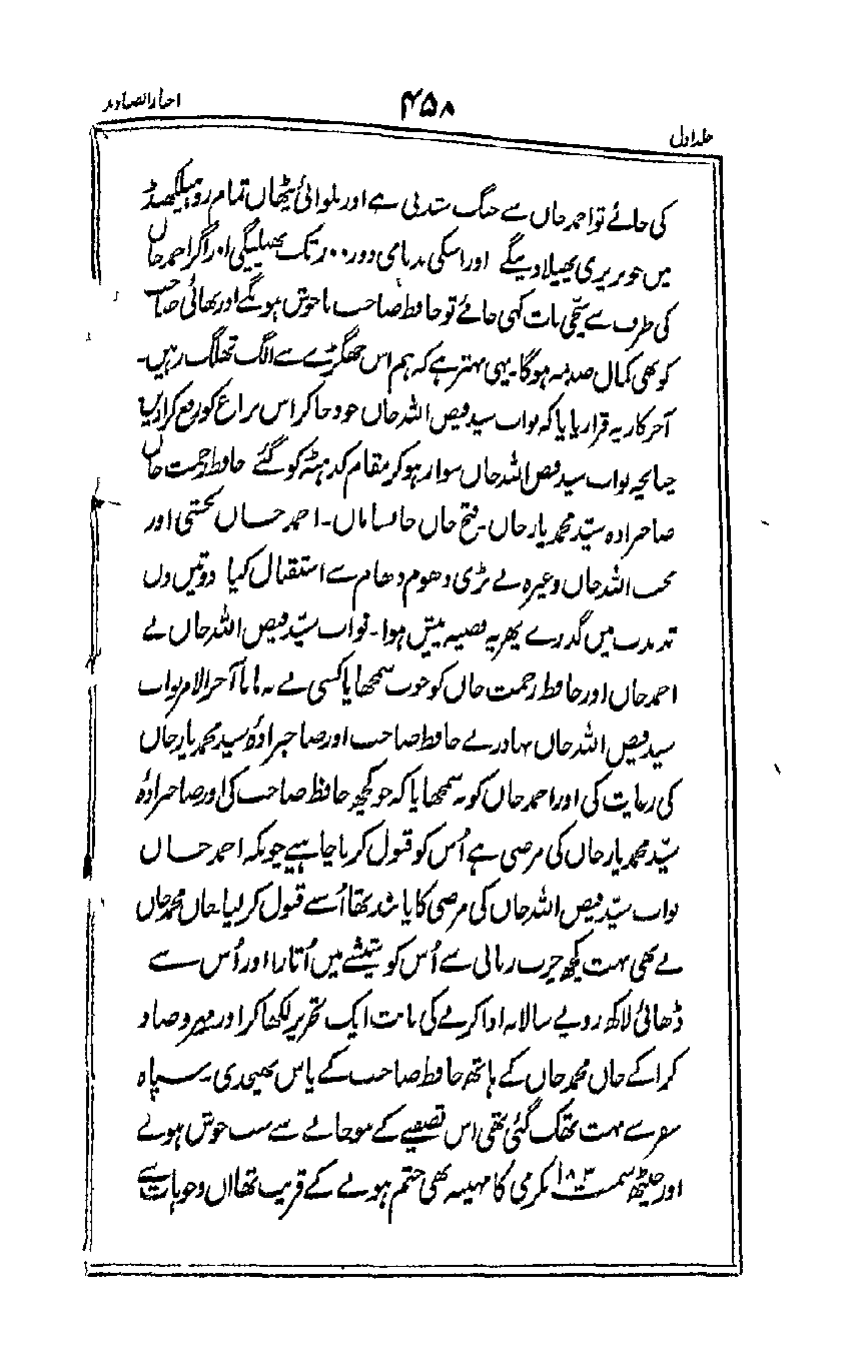 اخبار الصنادید
۴۵۸
جلد اول
کی جائے تو احمد خاں سے جنگ بدنی ہے اور بلوائی پٹھان تمام روہیلکھنڈ
میں خونریزی پھیلا دینگے اور اسکی بدنامی دور دور تک پھیلیگی اور اگر احمد خاں
کی طرف سے سچی بات کہی جائے تو حافظ صاحب ناخوش ہونگے اور بھائی صاحب
کو بھی کمال صدمہ ہوگا۔ یہی بہتر ہے کہ ہم اس جھگڑے سے الگ تھلگ رہیں۔
آخر کار یہ قرار پایا کہ نواب سید فیض اللہ خاں خود جا کر اس نزاع کو رفع کرادیں
چنانچہ نواب سید فیض اللہ خاں سوار ہو کر مقام کو گئے حافظ رحمت خاں
صاحبزادہ سید محمد یار خاں۔ فتح خاں خانساماں۔ احمد خاں بخشی اور
محب اللہ خاں وغیرہ نے بڑی دھوم دھام سے استقبال کیا دو تین دن
تذبذب میں گذرے پھر یہ قضیہ پیش ہوا۔ نواب سید فیض اللہ خاں نے
احمد خاں اور حافظ رحمت خاں کو خوب سمجھایا کسی نے نہ مانا آخر الامر نواب
سید فیض اللہ خاں بہادر نے حافظ صاحب اور صاحبزادہ سید محمد یار خاں
کی رعایت کی اور احمد خاں کو یہ سمجھایا کہ جو کچھ حافظ صاحب کی اور صاحبزادہ
سید محمد یار خاں کی مرضی ہے اُس کو قبول کرنا چاہیے چونکہ احمد خاں
نواب سید فیض اللہ خاں کی مرضی کا پابند تھا اُسے قبول کر لیا۔ خان محمد خاں
نے بھی بہت کچھ چرب زبانی سے اُس کو شیشے میں اُتارا اور اُس سے
ڈھائی لاکھ روپے سالانہ ادا کرنے کی بابت ایک تحریر لکھا کر اور مہر و صاد
کرا کے خان محمد خاں کے ہاتھ حافظ صاحب کے پاس بھیجدی۔ سپاہ
سفر سے بہت تھک گئی تھی اس قضیے کے ہو جانے سے سب خوش ہوئے
اور جیٹھ سمت بکرمی کا مہینہ بھی ختم ہونے کے قریب تھا ان وجوہات سے